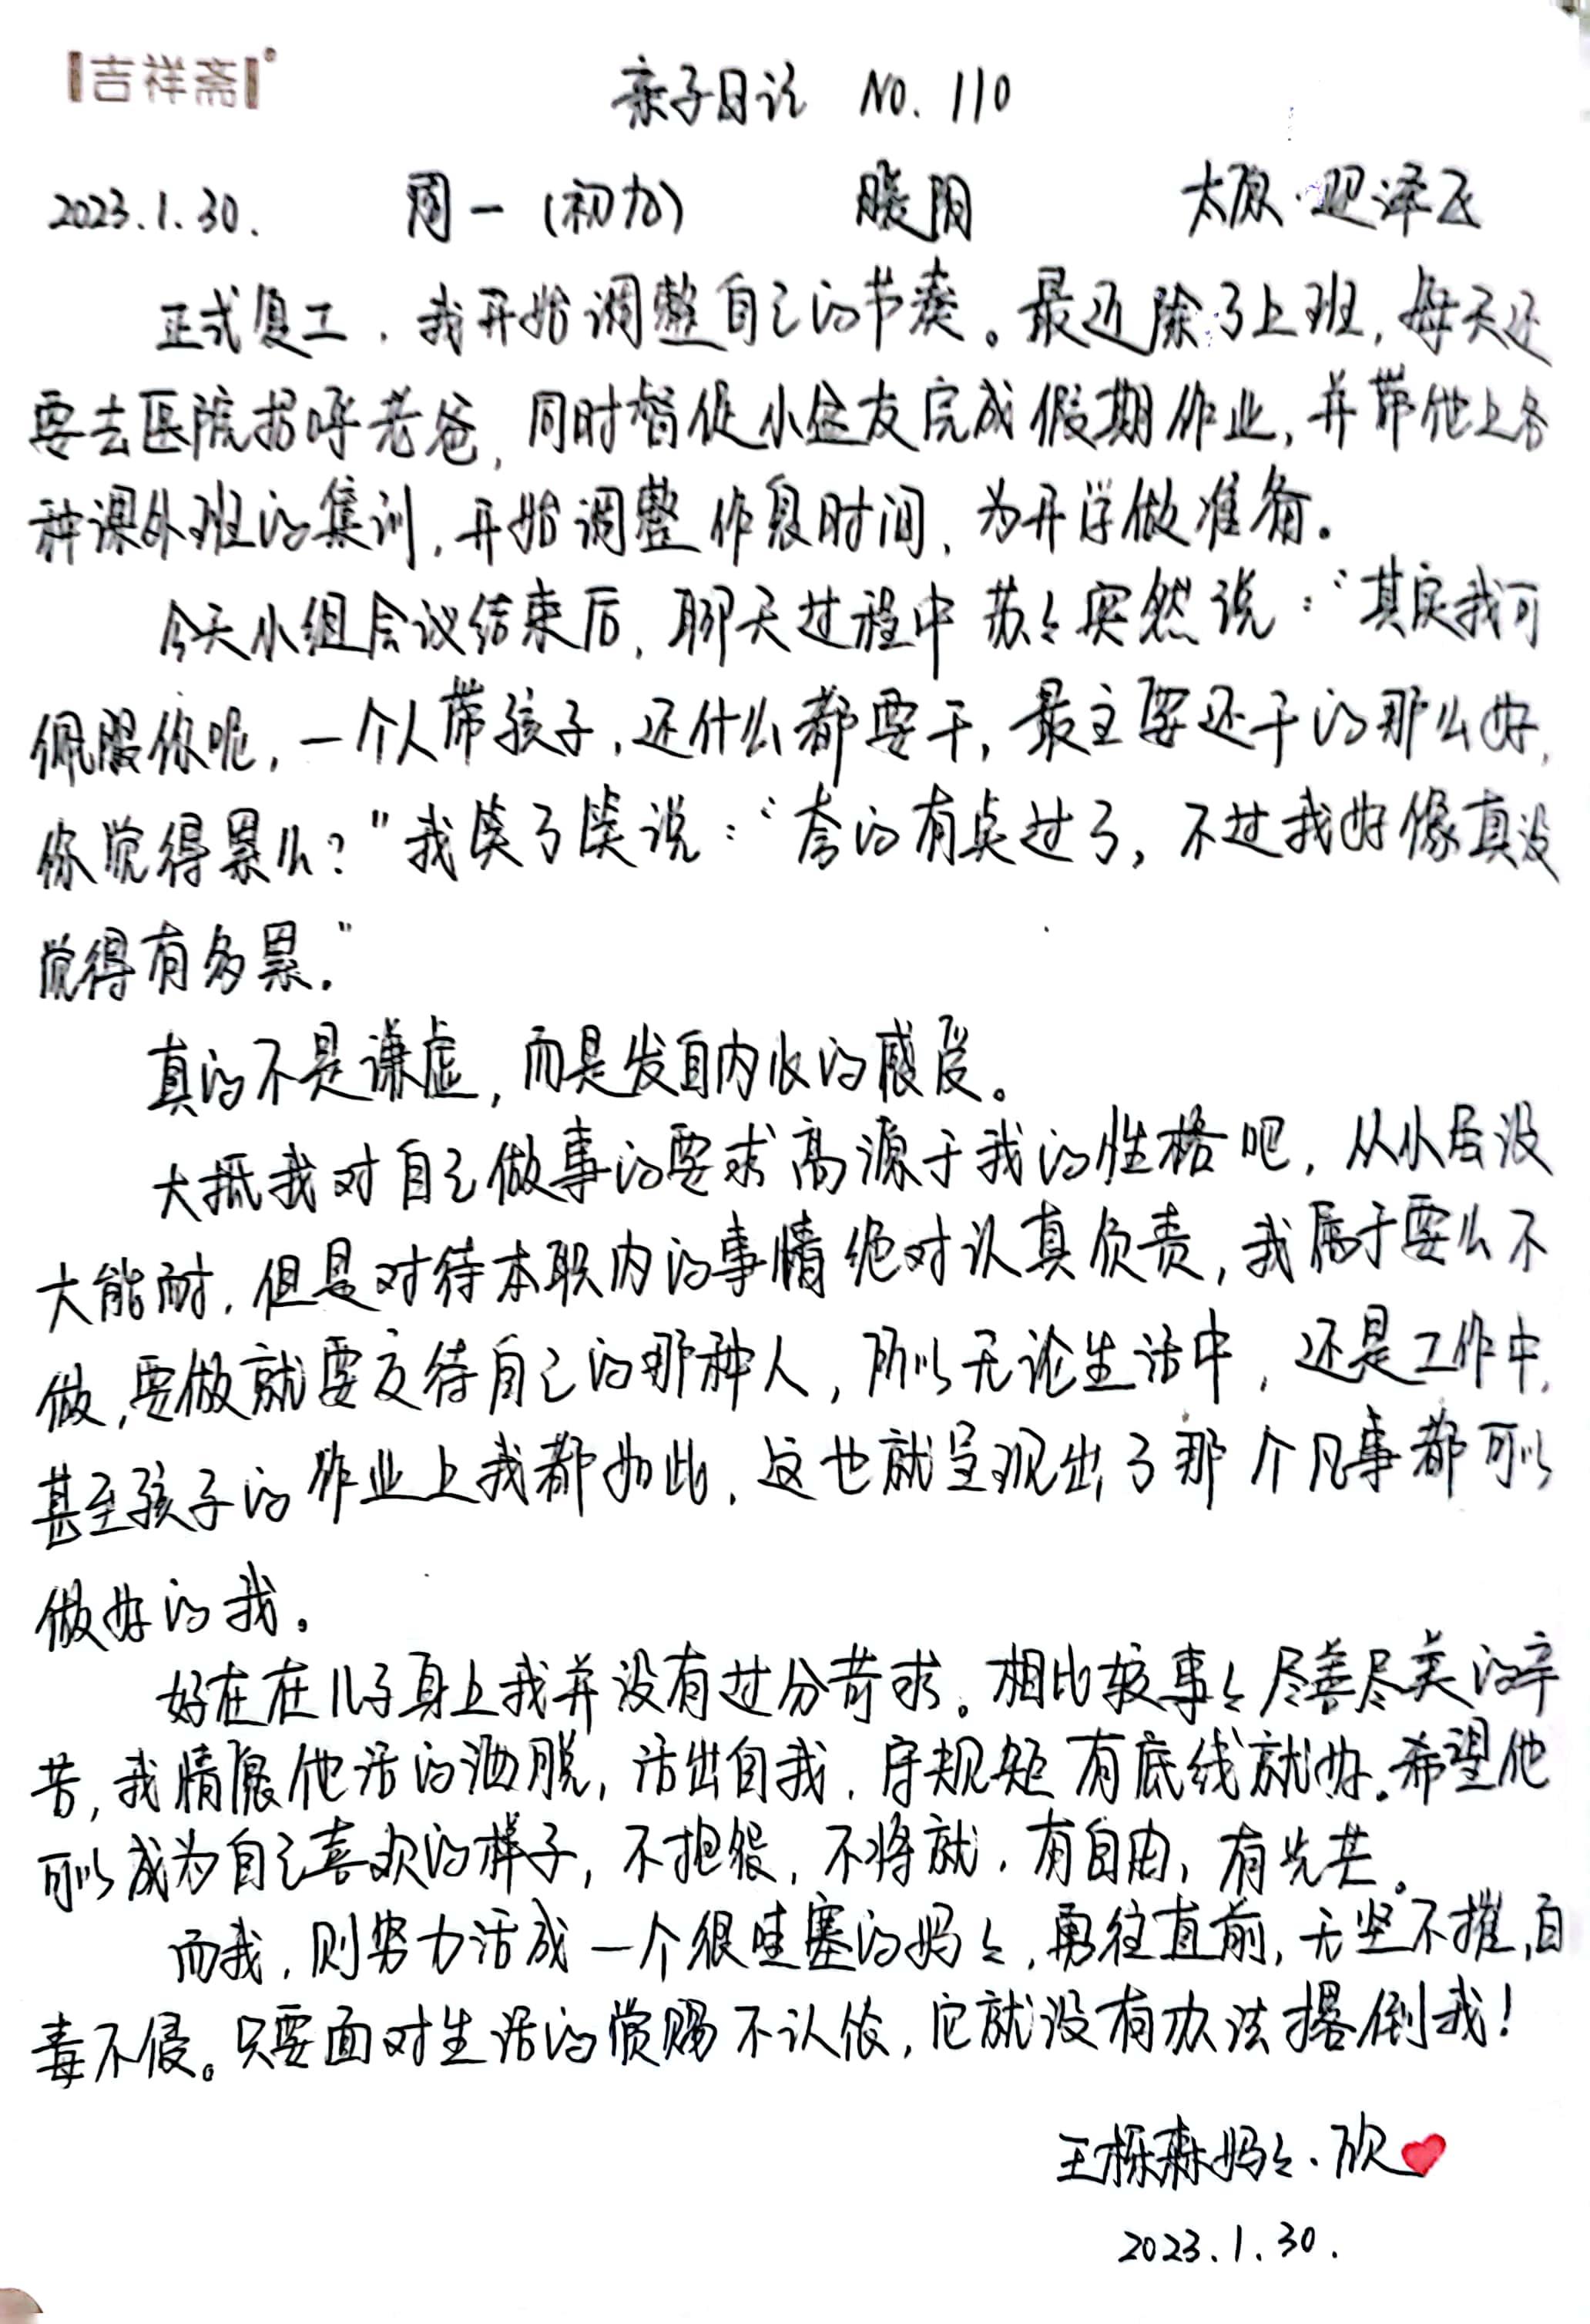 吉祥斋
亲子日记 NO.110
2023.1.30. 周一(初九) 晴 阴 太原·迎泽区
正式复工，我开始调整自己的节奏。最近除了上班，每天还
要去医院招呼老爸，同时督促小朋友完成假期作业，并带他上各
种课外班的集训，开始调整作息时间，为开学做准备。
今天小组会议结束后，聊天过程中苏々突然说：“其实我可
佩服你呢，一个人带孩子，还什么都要干，最主要还干的那么好，
你觉得累么？”我笑了笑说：“夸的有点过了，不过我好像真没
觉得有多累。”
真的不是谦虚，而是发自内心的感受。
大抵我对自己做事的要求高源于我的性格吧，从小虽没
大能耐，但是对待本职内的事情绝对认真负责，我属于要么不
做，要做就要交待自己的那种人，所以无论生活中，还是工作中，
甚至孩子的作业上我都如此，这也就呈现出了那个凡事都可以
做好的我。
好在在儿子身上我并没有过分苛求。相比较事々尽善尽美的辛
苦，我情愿他活的洒脱，活出自我，守规矩有底线就好。希望他
可以成为自己喜欢的样子，不抱怨，不将就，有自由，有光芒。
而我，则努力活成一个很哇塞的妈々，勇往直前，无坚不摧，百
毒不侵。只要面对生活的赏赐不认怂，它就没有办法撂倒我！
王栎森妈々·欣
2023.1.30.